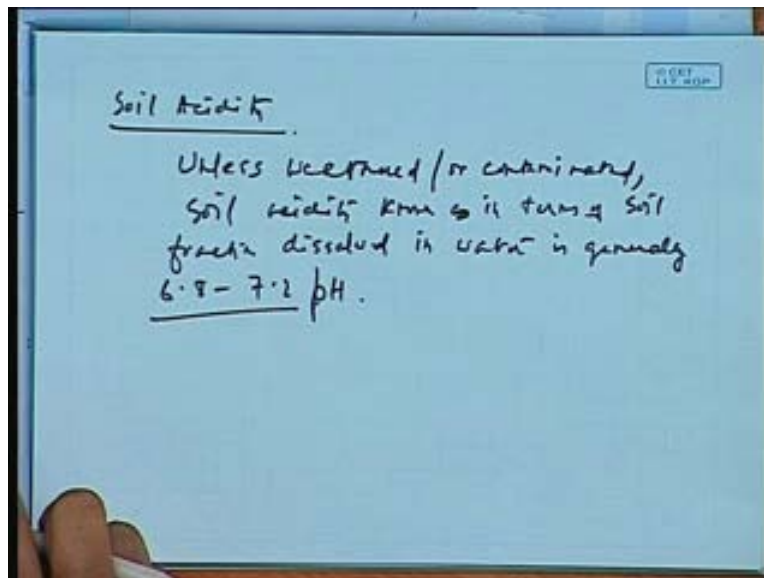 Soil Acidity
Unless weathered / or contaminated,
soil acidity known in terms of soil
fraction dissolved in water is generally
6.8 - 7.2 pH.